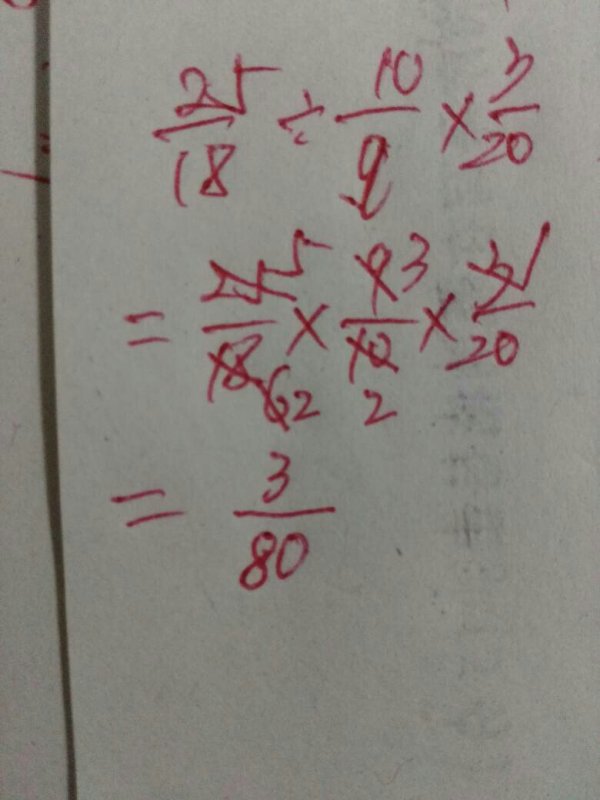 25/18 ÷ 10/9 × 3/20
= 25/18 × 9/10 × 3/20 5 3 1 6 2 2
= 3/80